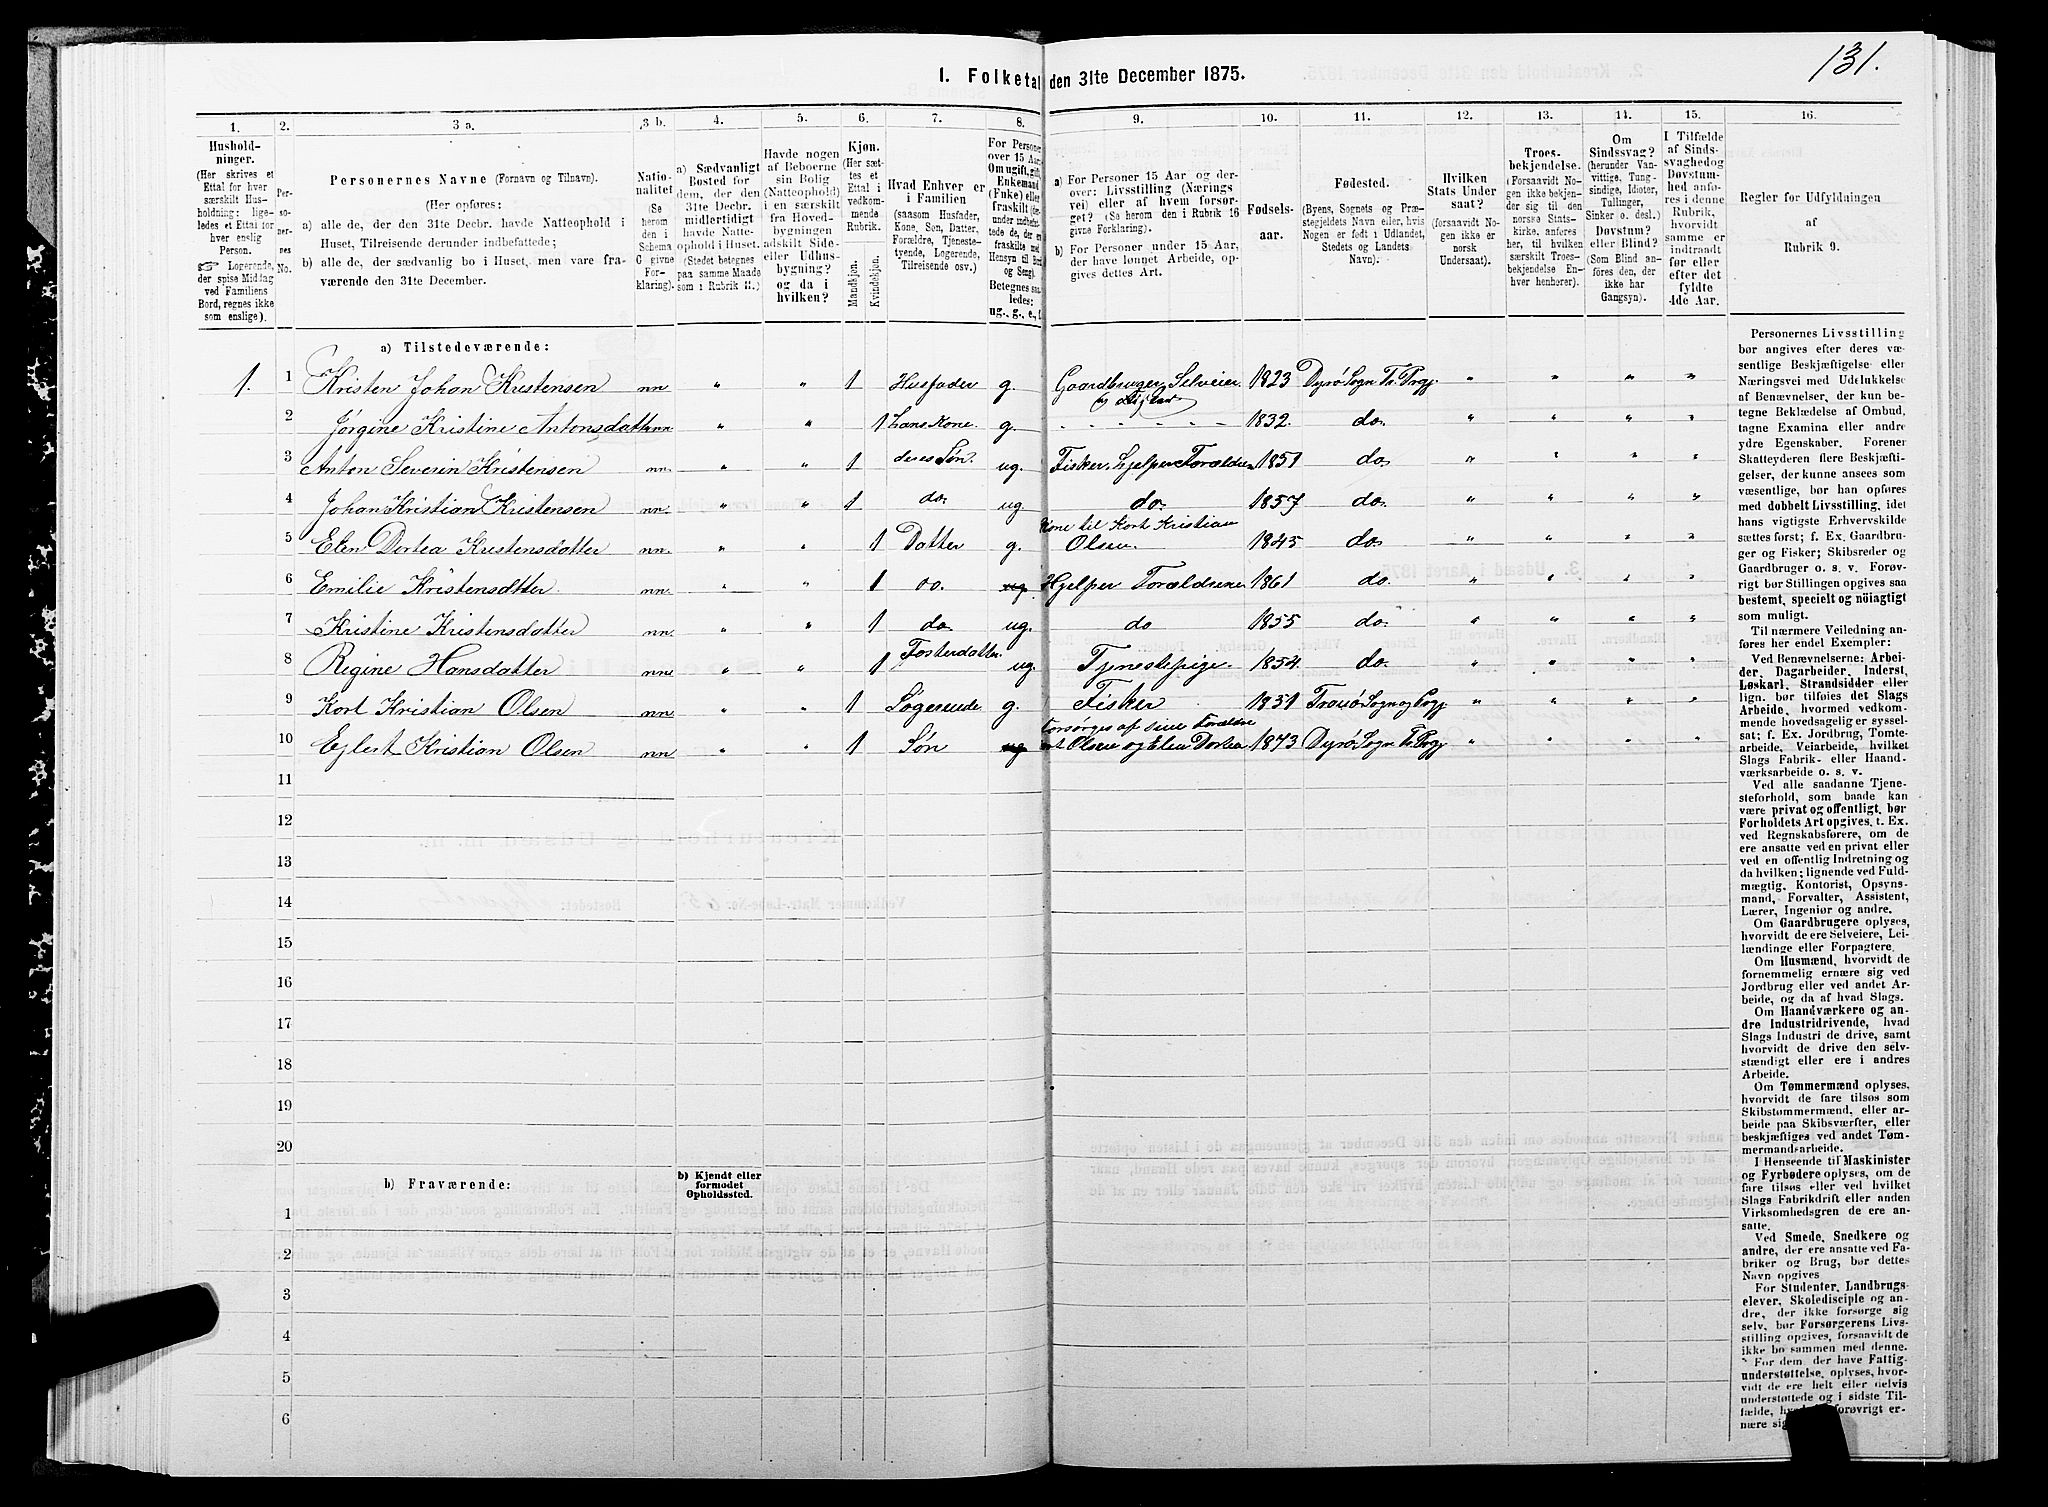 131.
1. Folketal den 31te December 1875.
1. 2. 3 a. 3 b. 4. 5. 6. 7. 8. 9. 10. 11. 12. 13. 14. 15. 16.
Hushold-
ninger.
(Her skrives et
Ettal for hver
særskilt Hus-
holdning; lige-
ledes et Ettal for
hver enslig
Person.
☞ Logerende,
der spise Middag
ved Familiens
Bord, regnes ikke
som enslige).
Per-
so-
ner-
nes
No.
Personernes Navne (Fornavn og Tilnavn).
(Her opføres:
a) alle de, der den 31te Decbr. havde Natteophold i
Huset, Tilreisende derunder indbefattede;
b) alle de, der sædvanlig bo i Huset, men vare fra-
værende den 31te December.
Natio-
nalitet
(Se
herom
den i
Schema
C givne
For-
klaring).
a) Sædvanligt
Bosted for
dem, der den
31te Decbr.
midlertidigt
havde Natte-
ophold i Huset.
(Stedet betegnes
paa samme Maade
som i Rubrik 11.)
Havde nogen
af Beboerne
sin Bolig
(Natteophold)
i en særskilt
fra Hoved-
bygningen
adskilt Side-
eller Udhus-
bygning?
og da i
hvilken?
Kjøn.
(Her sæt-
tes et
Ettal i
vedkom-
mende
Rubrik.
Mandkjøn.
Kvindekjøn.
Hvad Enhver er
i Familien
(saasom Husfader,
Kone, Søn, Datter,
Forældre, Tjeneste-
tyende, Logerende,
Tilreisende osv.)
For Personer
over 15 Aar:
Om ugift, gift,
Enkemand
(Enke) eller
fraskilt
Betegnes saa-
ledes:
ug., g., e., f.
a) For Personer 15 Aar og der-
over: Livsstilling (Nærings
vei) eller af hvem forsør-
get? (Se herom den i Rubrik 16
givne Forklaring).
b) For Personer under 15 Aar,
der have lønnet Arbeide, op-
gives dettes Art.
Fødsels-
aar.
Fødested.
(Byens, Sognets og Præ-
stegjeldets Navn eller, hvis
Nogen er født i Udlandet,
Stedets og Landets
Navn).
Hvilken
Stats Under
saat?
(forsaavidt No-
gen ikke er
norsk
Undersaat).
Troes-
bekjendelse.
(Forsaavidt No-
gen ikke bekjen-
der sig til den
norske Stats-
kirke, anføres
her, til hvilken
særskilt Troes-
bekjendelse En-
hver henhører).
Om
Sindssvag?
(herunder Van-
vittige, Tung-
sindige, Idioter,
Tullinger,
Sinker o. desl.)
Døvstum?
eller Blind?
(Som Blind an-
føres den, der
ikke har
Gangsyn).
I Tilfælde
af Sinds-
svaghed og
Døvstum-
hed anfø-
res i denne
Rubrik,
hvorvidt
samme er
indtraadt
før eller
efter det
fyldte
4de Aar.
Regler for Udfyldningen
af
Rubrik 9.
a) Tilstedeværende:
1. 1 Kristen Johan Kristensen nn. " " 1 Husfader g. Gaardbruger Selveier 1823 Dyrø Sogn Tr. Prgj. " " " "
og
2 Jørgine Kristine Antonsdatter nn " " 1 hans Kone g. 1832. do. " " " "
3 Anton Severin Kristensen nn. " " 1 deres Søn ug. Fisker, hjelper Forældrene 1851 do. " " " "
4 Johan Kristian Kristensen nn. " " 1 do. ug. do. 1857 do. " " " "
Kone til Kort Kristian
5 Elen Dortea Kristensdatter nn. " " 1 Datter g. Olsen. 1845 do. " " " "
6 Emilie Kristensdatter nn. " " 1 do. ug. Hjelper Forældrene 1861 do. " " " "
7 Kristine Kristensdatter nn. " " 1 do. ug. do 1855 do. " " " "
8 Regine Hansdatter nn. " " 1 Fosterdatter ug. Tjenestepige 1854. do. " " " "
9 Kort Kristian Olsen nn " " 1 Logerende g. Fisker. 1851 Tranø Sogn og Prgj. " " " "
Forsørges af sine Forældre
10 Eylert Kristian Olsen nn. " " 1 Søn ug Kort Olsen og Elen Dortea 1873 Dyrø Sogn Tr. Prgj " " " "
11
12
13
14
15
16
17
18
19
20
b) Fraværende:
b) Kjendt eller
formodet
Opholdssted.
1
2
3
4
5
6
Personernes Livsstilling
bør angives efter deres væ-
sentlige Beskjæftigelse eller
Næringsvei med Udelukkelse
af Benævnelser, der kun be-
tegne Beklædelse af Ombud,
tagne Examina eller andre
ydre Egenskaber. Forener
Skatteyderen flere Beskjæfti-
gelser, der kunne ansees som
væsentlige, bør han opføres
med dobbelt Livsstilling, idet
hans vigtigste Erhvervskilde
sættes først; f. Ex. Gaardbru-
ger og Fisker; Skibsreder og
Gaardbruger o. s. v. Forøv-
rigt bør Stillingen opgives saa
bestemt, specielt og nöiagtigt
som muligt.
Til nærmere Veiledning an-
føres her endel Exempler:
Ved Benævnelserne: Arbei-
der, Dagarbeider, Inderst,
Løskarl, Strandsidder eller
lign. bør tilføies det Slags
Arbeide, hvormed vedkom-
mende hovedsagelig er syssel-
sat; f. Ex. Jordbrug, Tomte-
arbeide, Veiarbeide, hvilket
Slags Fabrik- eller Haand-
værksarbeide o. s. v.
Ved alle saadanne Tjene-
steforhold, som baade kan
være privat og offentligt, bør
Forholdets Art opgives, t. Ex.
ved Regnskabsførere, om de
ere ansatte ved en privat eller
ved en offentlig Indretning og
da hvilken; lignende ved Fuld-
mægtig, Kontorist, Opsyns-
mand, Forvalter, Assistent,
Lærer, Ingeniør og andre.
Om Gaardbrugere oplyses,
hvorvidt de ere Selveiere, Lei-
lændinge eller Forpagtere.
Om Husmænd, hvorvidt de
fornemmelig ernære sig ved
Jordbrug eller ved andet Ar-
beide, og da af hvad Slags.
Om Haandværkere og an-
dre Industridrivende, hvad
Slags Industri de drive, samt
hvorvidt de drive den selv-
stændigt eller ere i andres
Arbeide.
Om Tømmermænd oplyses,
hvorvidt de fare tilsøs som
Skibstømmermænd, eller ar-
beide paa Skibsværfter, eller
beskjæftiges ved andet Tøm-
mermandsarbeide.
I Henseende til Maskinister
og Fyrbødere oplyses, om de
fare tilsøs eller ved hvilket
Slags Fabrikdrift eller anden
Virksomhedsgren de ere an-
satte.
Ved Smede, Snedkere og
andre, der ere ansatte ved Fa-
briker og Brug, bør dettes
Navn opgives
For Studenter, Landbrugs-
elever, Skoledisciple og an-
dre, der ikke forsørge sig
selv, bør Forsørgerens Livs-
stilling opgives, forsaavidt de
ikke bo sammen med denne.
For dem, der have Fattig-
understøttelse, oplyses, hvor-
vidt de ere helt eller delvis
understøttede og i sidste Til-
fælde, forøvrigt er-
nære sig